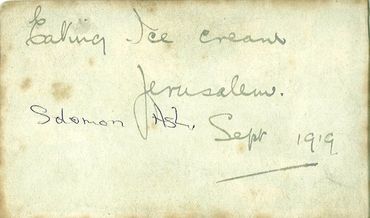 Eating Ice cream
Jerusalem.
Solomon Ash.
Sept 1919